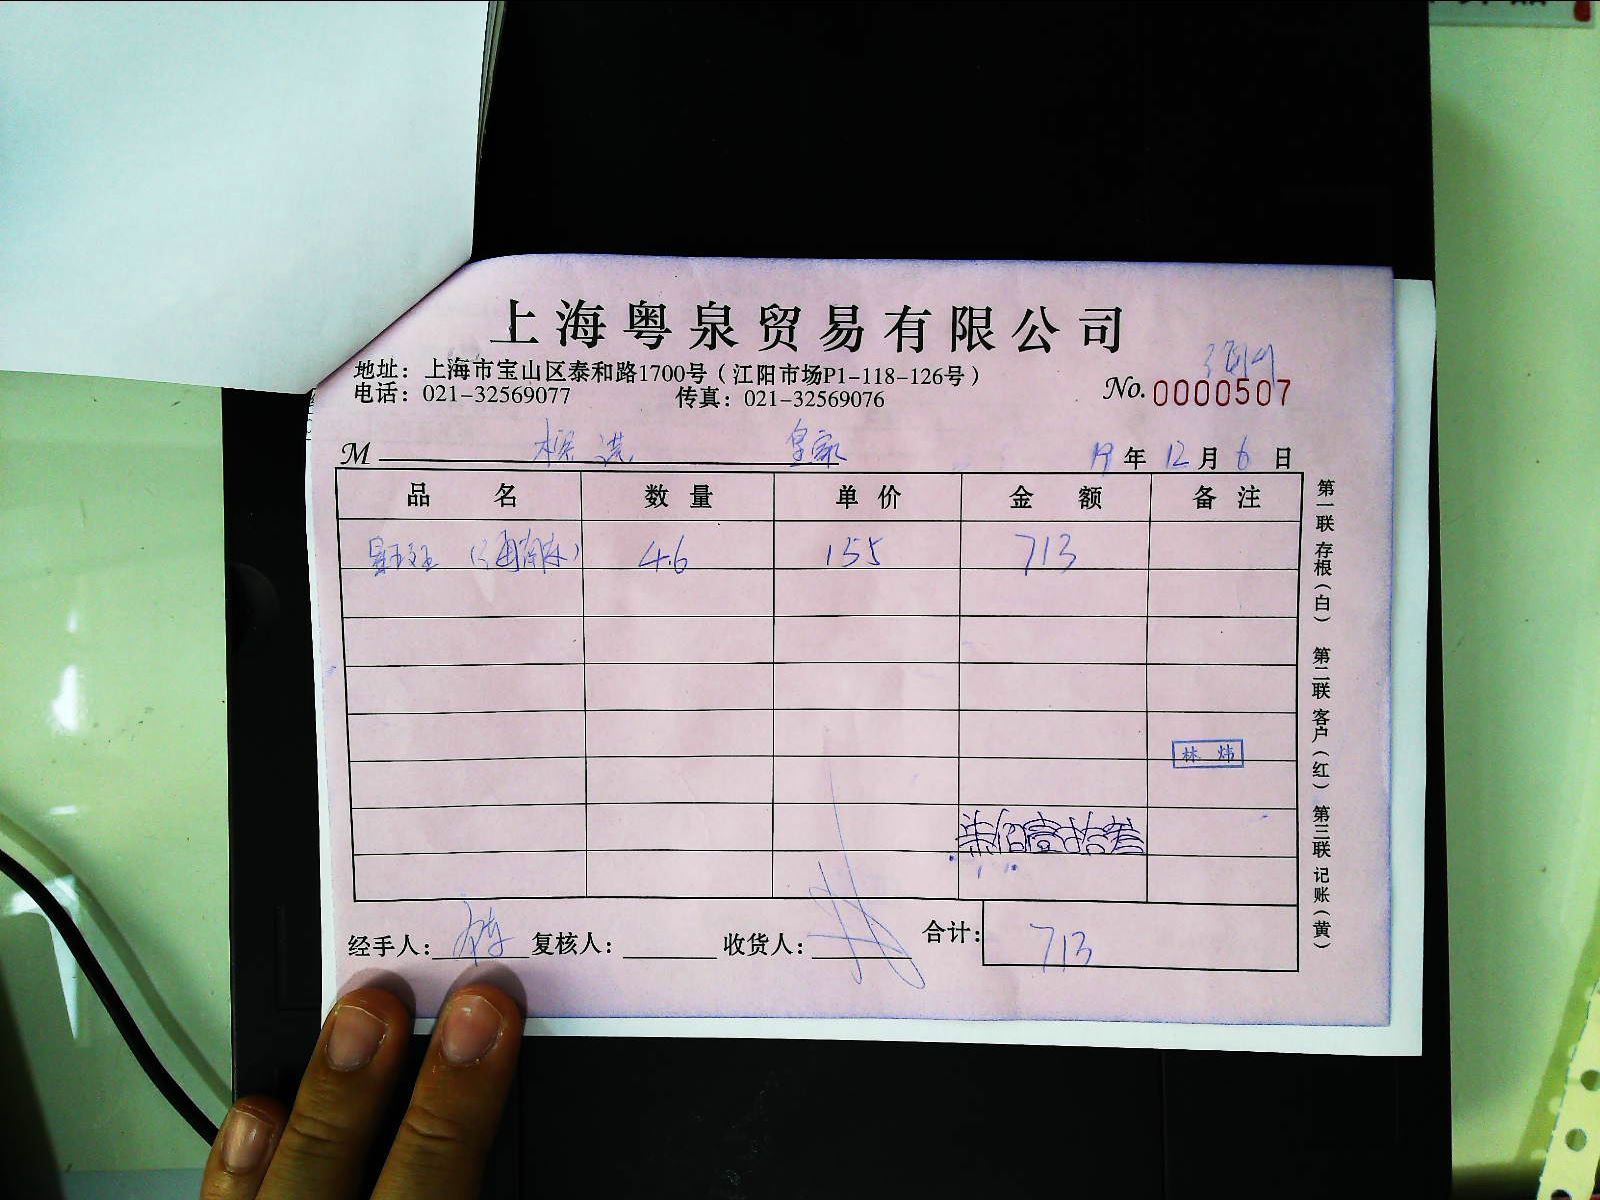 上海粤泉贸易有限公司
地址：上海市宝山区泰和路1700号（江阳市场P1-118-126号）
电话：021-32569077 传真：021-32569076
No. 0000507
M 皇家 19 年 12 月 6 日
品 名 数 量 单 价 金 额 备 注
4.6 155 713
林 炜
柒佰壹拾叁
经手人： 复核人： 收货人： 合计： 713
第一联 存根（白） 第二联 客户（红） 第三联 记账（黄）